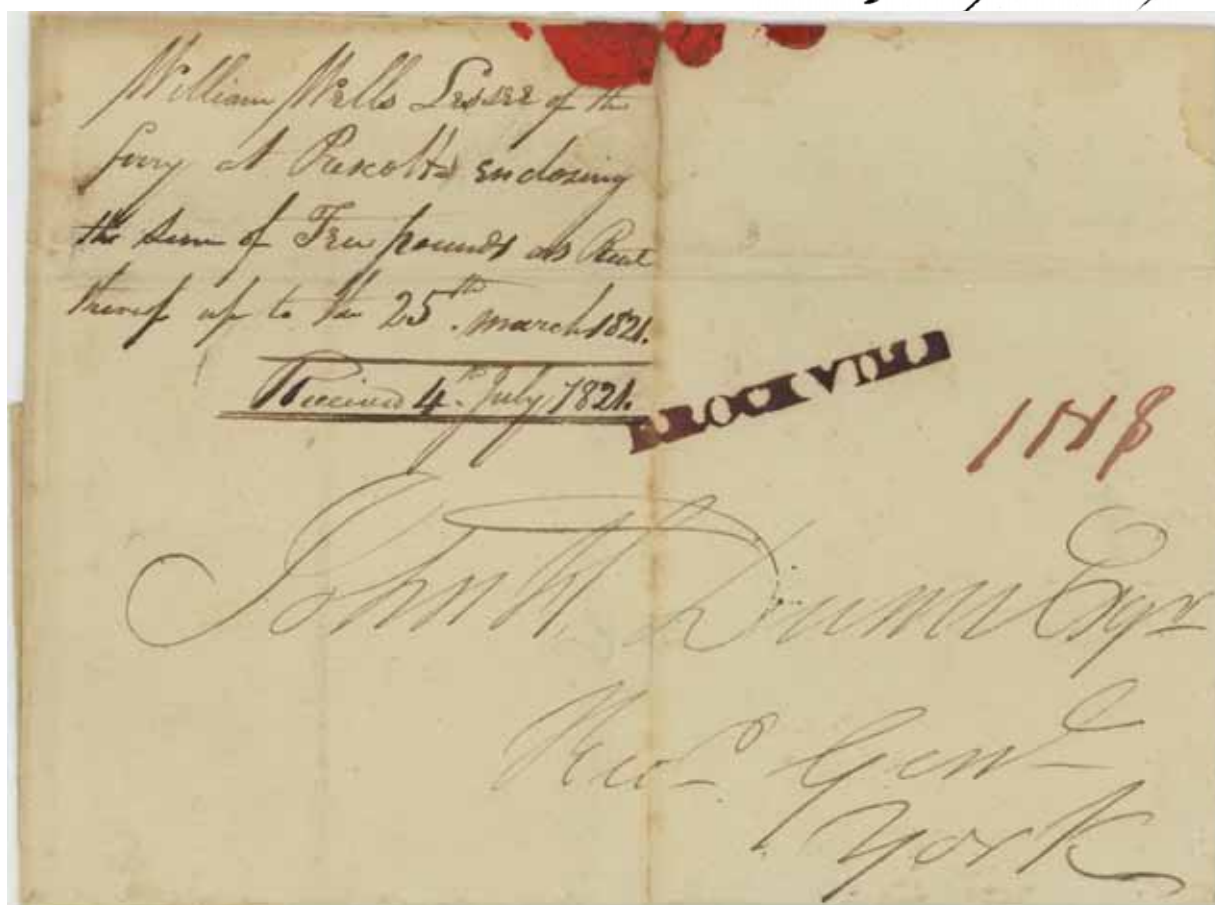 William Wells Lessee of the
ferry at Prescott enclosing
the sum of Ten pounds as Rent
thereof up to the 25th. march 1821.
Received 4th. July 1821.
BROCKVILLE
John H. Dunn Esqr
Recr Genl
York